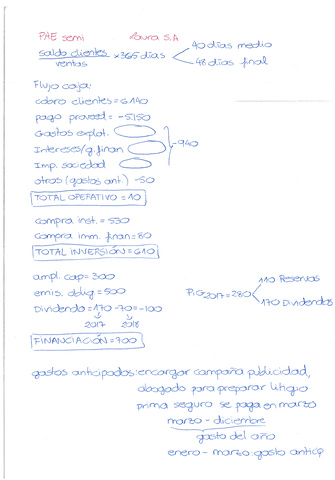 PAE semi Laura S.A
saldo clientes x365 días 40 días medio
ventas 48 días final
Flujo caja:
cobro clientes = 6140
pago proveed = -5.150
Gastos explot.
Intereses/g.finan -940
Imp. sociedad
otros (gastos ant.) -50
TOTAL OPERATIVO = 10
compra inst. = 530
compra imm. finan = 80
TOTAL INVERSIÓN = 610
ampl. cap = 300
emis. oblig = 500 110 Reservas
PiG2017 = 280
Dividendo = 170 -70 = -100 170 Dividendos
2017 2018
FINANCIACIÓN = 700
gastos anticipados: encargar campaña publicidad,
abogado para preparar litigio
prima seguro se paga en marzo
marzo - diciembre
gasto del año
enero - marzo: gasto anticip